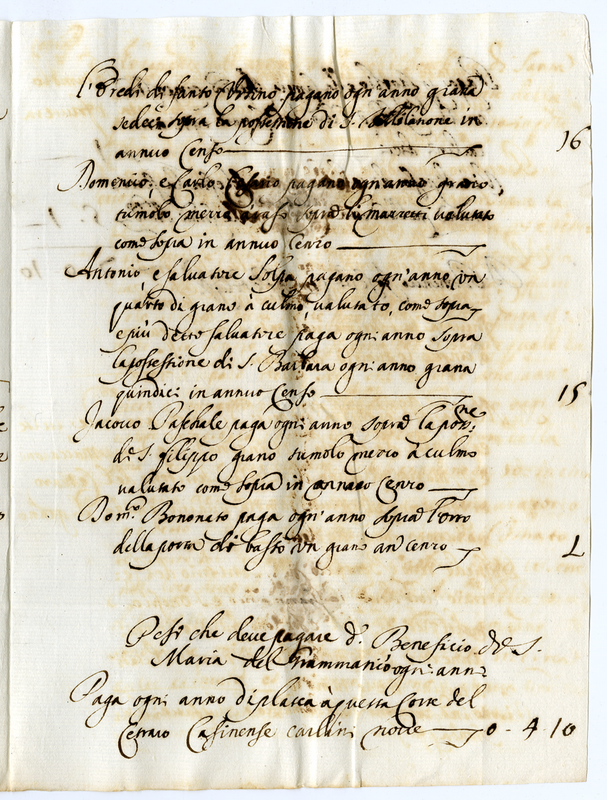 l'Eredi di Santo pagano ogn'anno grana
sedeci sopra la possessione di S. in
annuo Censo 16
Domenico, e Carlo pagano ogn'anno grano
tumolo mezzo a raso sopra li valutato
come sopra in annuo Cenzo
Antonio e Salvatore pagano ogn'anno un
quarto di grano à culmo, valutato, come sopra,
e più detto Salvatore paga ogni anno sopra
la possessione di S. Barbara ogni anno grana
quindici in annuo Censo 15
Jacovo Paschale paga ogni anno sopra la pos.ne
di S. Filippo grano tumolo mezzo à culmo
valutato come sopra in annuo Cenzo
Dom.co Bononato paga ogn'anno sopra l'orto
della porta di basso un grano an. cenzo 1
Pesi che deve pagare d.o Beneficio di S.
Maria del ogni anno
Paga ogni anno di platea à questa Corte del
Cetraro Casinense carlini nove 0 - 4 - 10